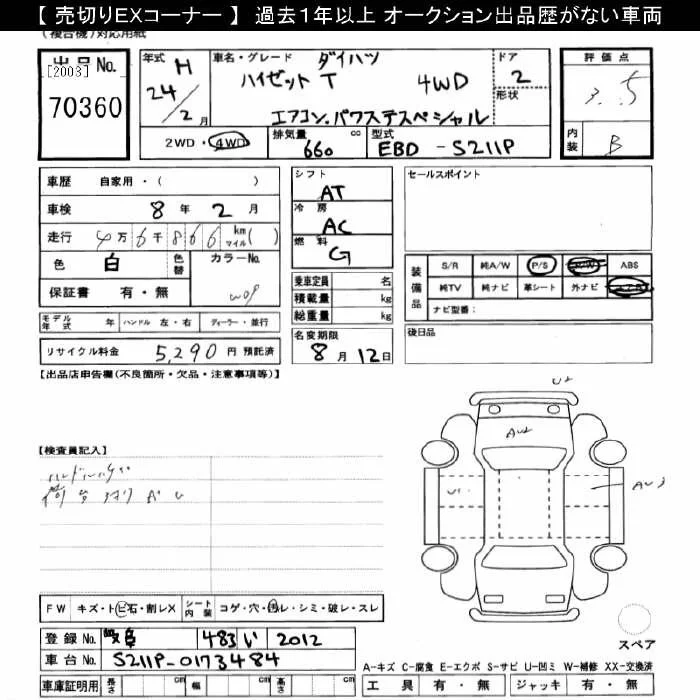 【 売切りEXコーナー 】 過去1年以上 オークション出品歴がない車両
(複合機)対応用紙
出品No.
[2003]
70360
年式 H 24/2月
車名・グレード ダイハツ
ハイゼットT 4WD
エアコン.パワステスペシャル
ドア 2
形状
評価点 3.5
内装 B
2WD・4WD
排気量 660 cc
型式 EBD-S211P
車歴 自家用・( )
車検 8年 2月
走行 4万 6千 866 km マイル( )
色 白 色替 カラーNo. W09
保証書 有・無
モデル年式 年 ハンドル 左・右 ディーラー・並行
リサイクル料金 5,290 円 預託済
シフト AT
冷房 AC
燃料 G
乗車定員 名
積載量 kg
総重量 kg
名変期限 8月 12日
セールスポイント
装備品 S/R 純A/W P/S ABS
純TV 純ナビ 革シート 外ナビ
ナビ型番:
後日品
【出品店申告欄(不良箇所・欠品・注意事項等)】
【検査員記入】
荷台
U2
AU2
FW キズ・トビ石・割レX シート内装 コゲ・穴・汚レ・シミ・破レ・スレ
登録No. 岐阜 483 い 2012
車台No. S211P-0173484
車庫証明用 長さ cm 幅 cm 高さ cm
スペア
A-キズ C-腐食 E-エクボ S-サビ U-凹ミ W-補修 XX-交換済
工具 有・無 ジャッキ 有・無